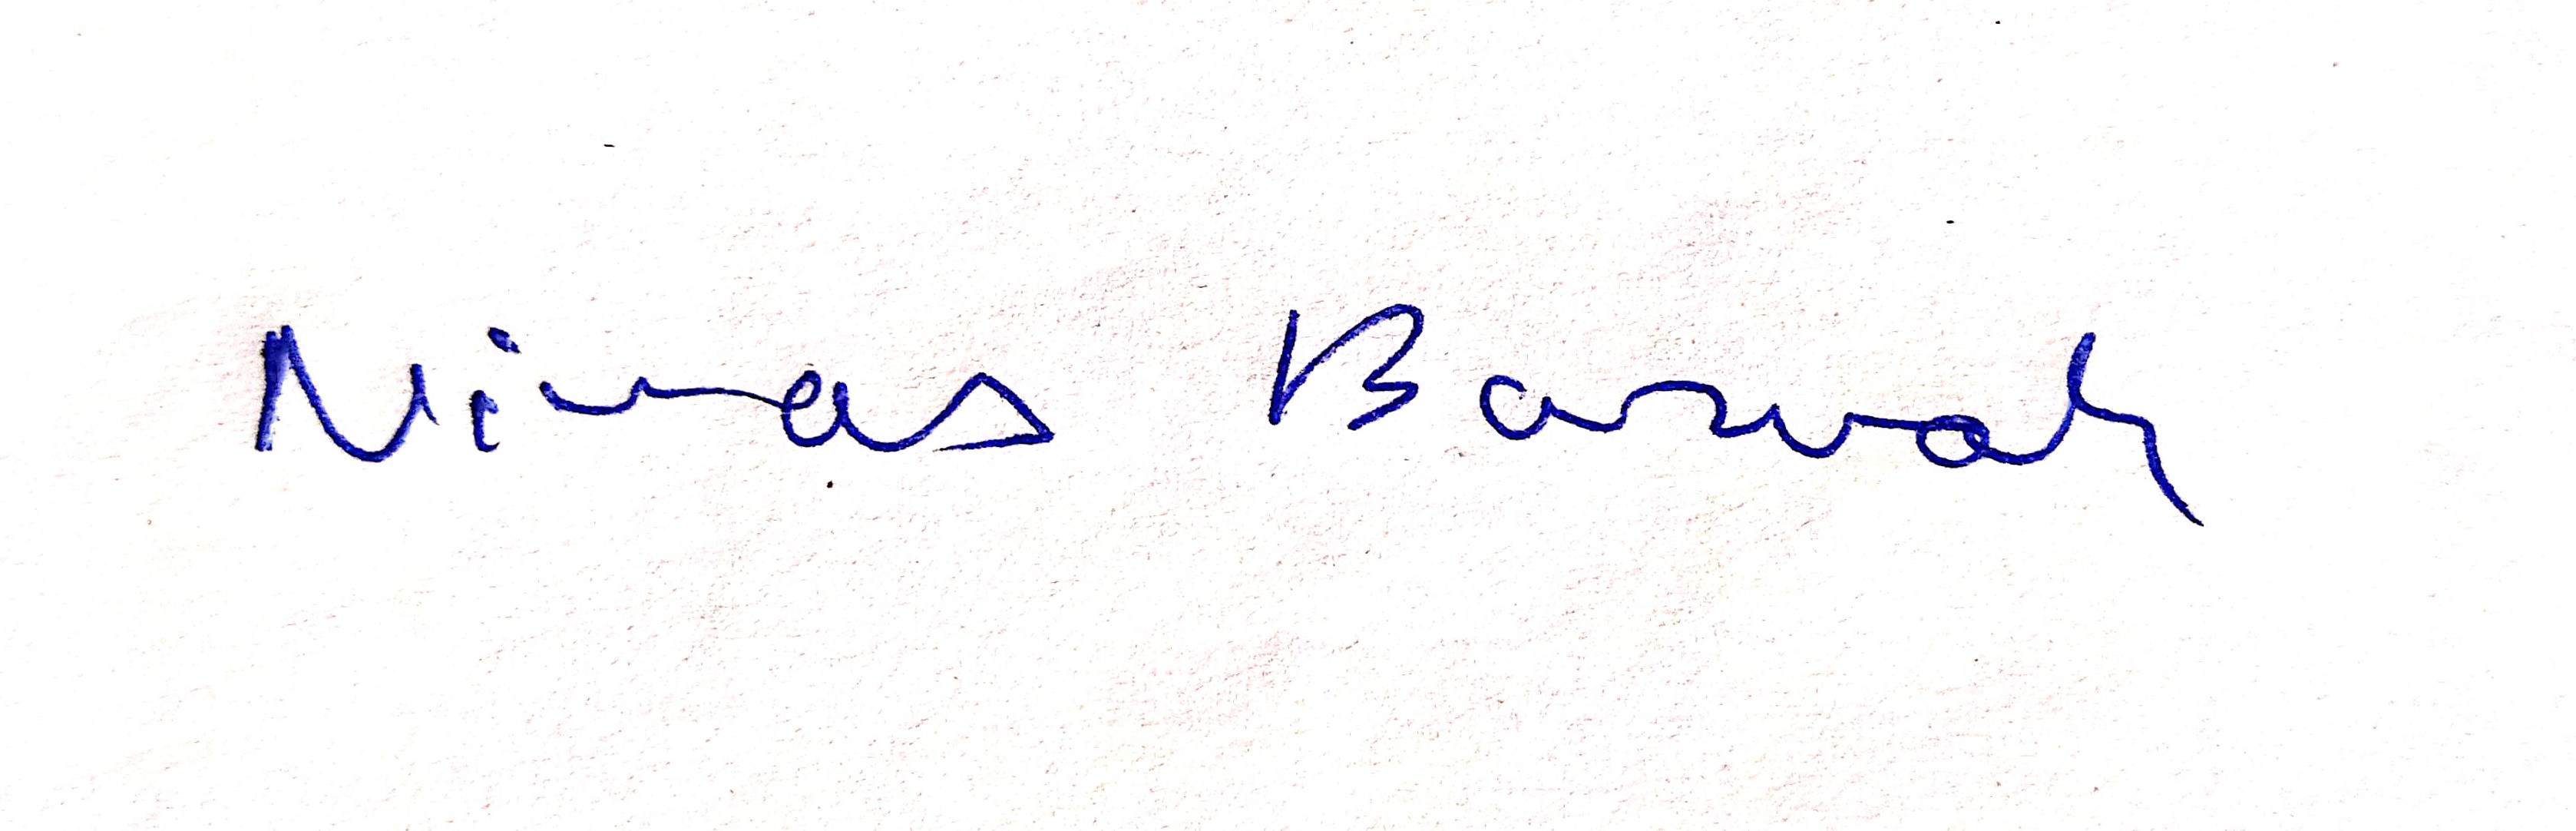 Nivas Barvah